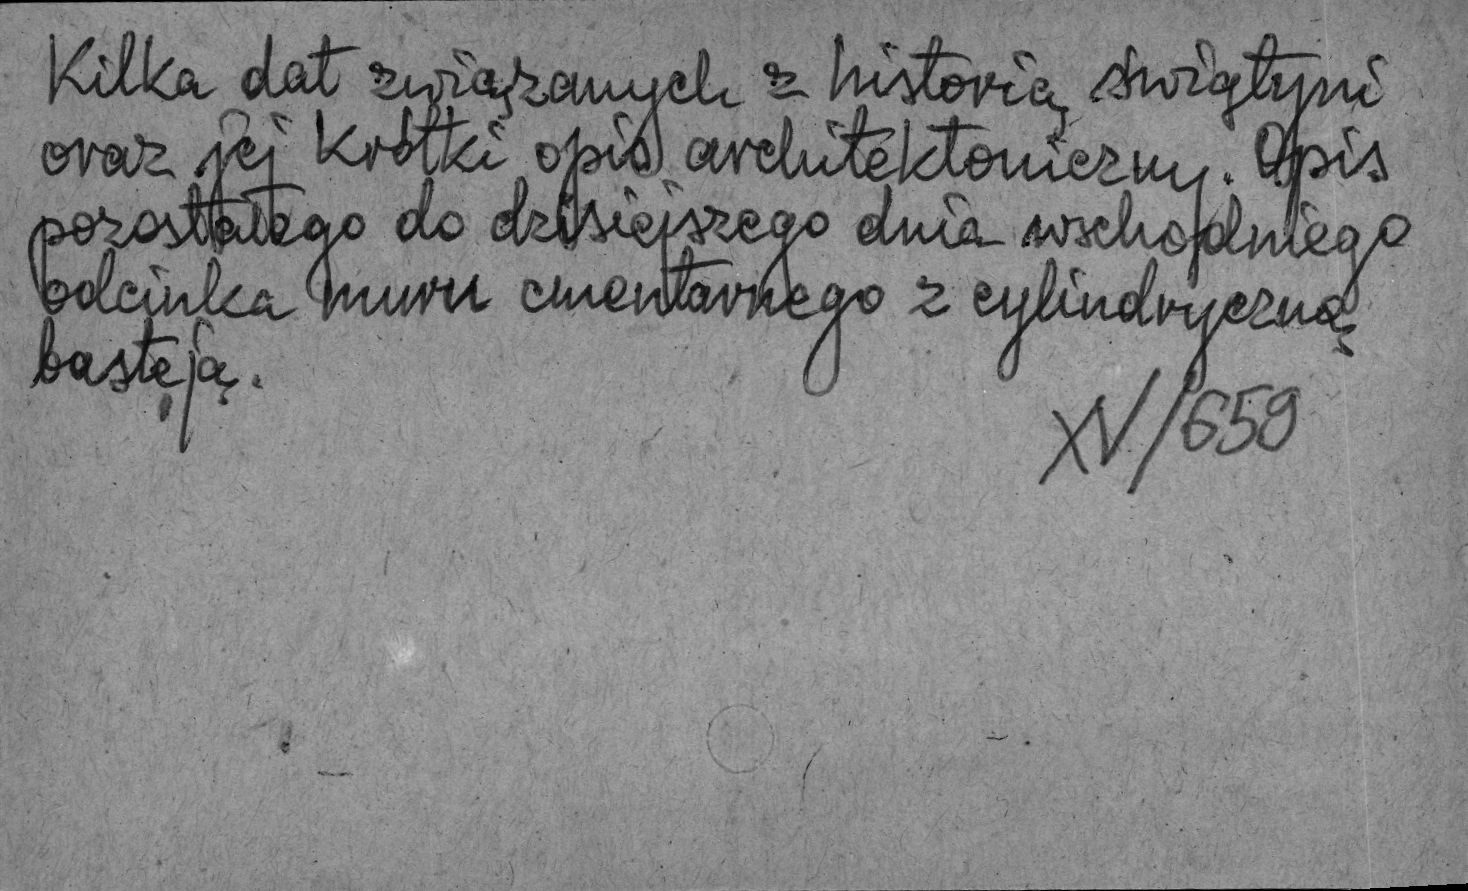 Kilka dat związanych z historią świątyni
oraz jej krótki opis architektoniczny. Opis
pozostałego do dzisiejszego dnia wschodniego
odcinka muru cmentarnego z cylindryczną
basteją.
XV/659